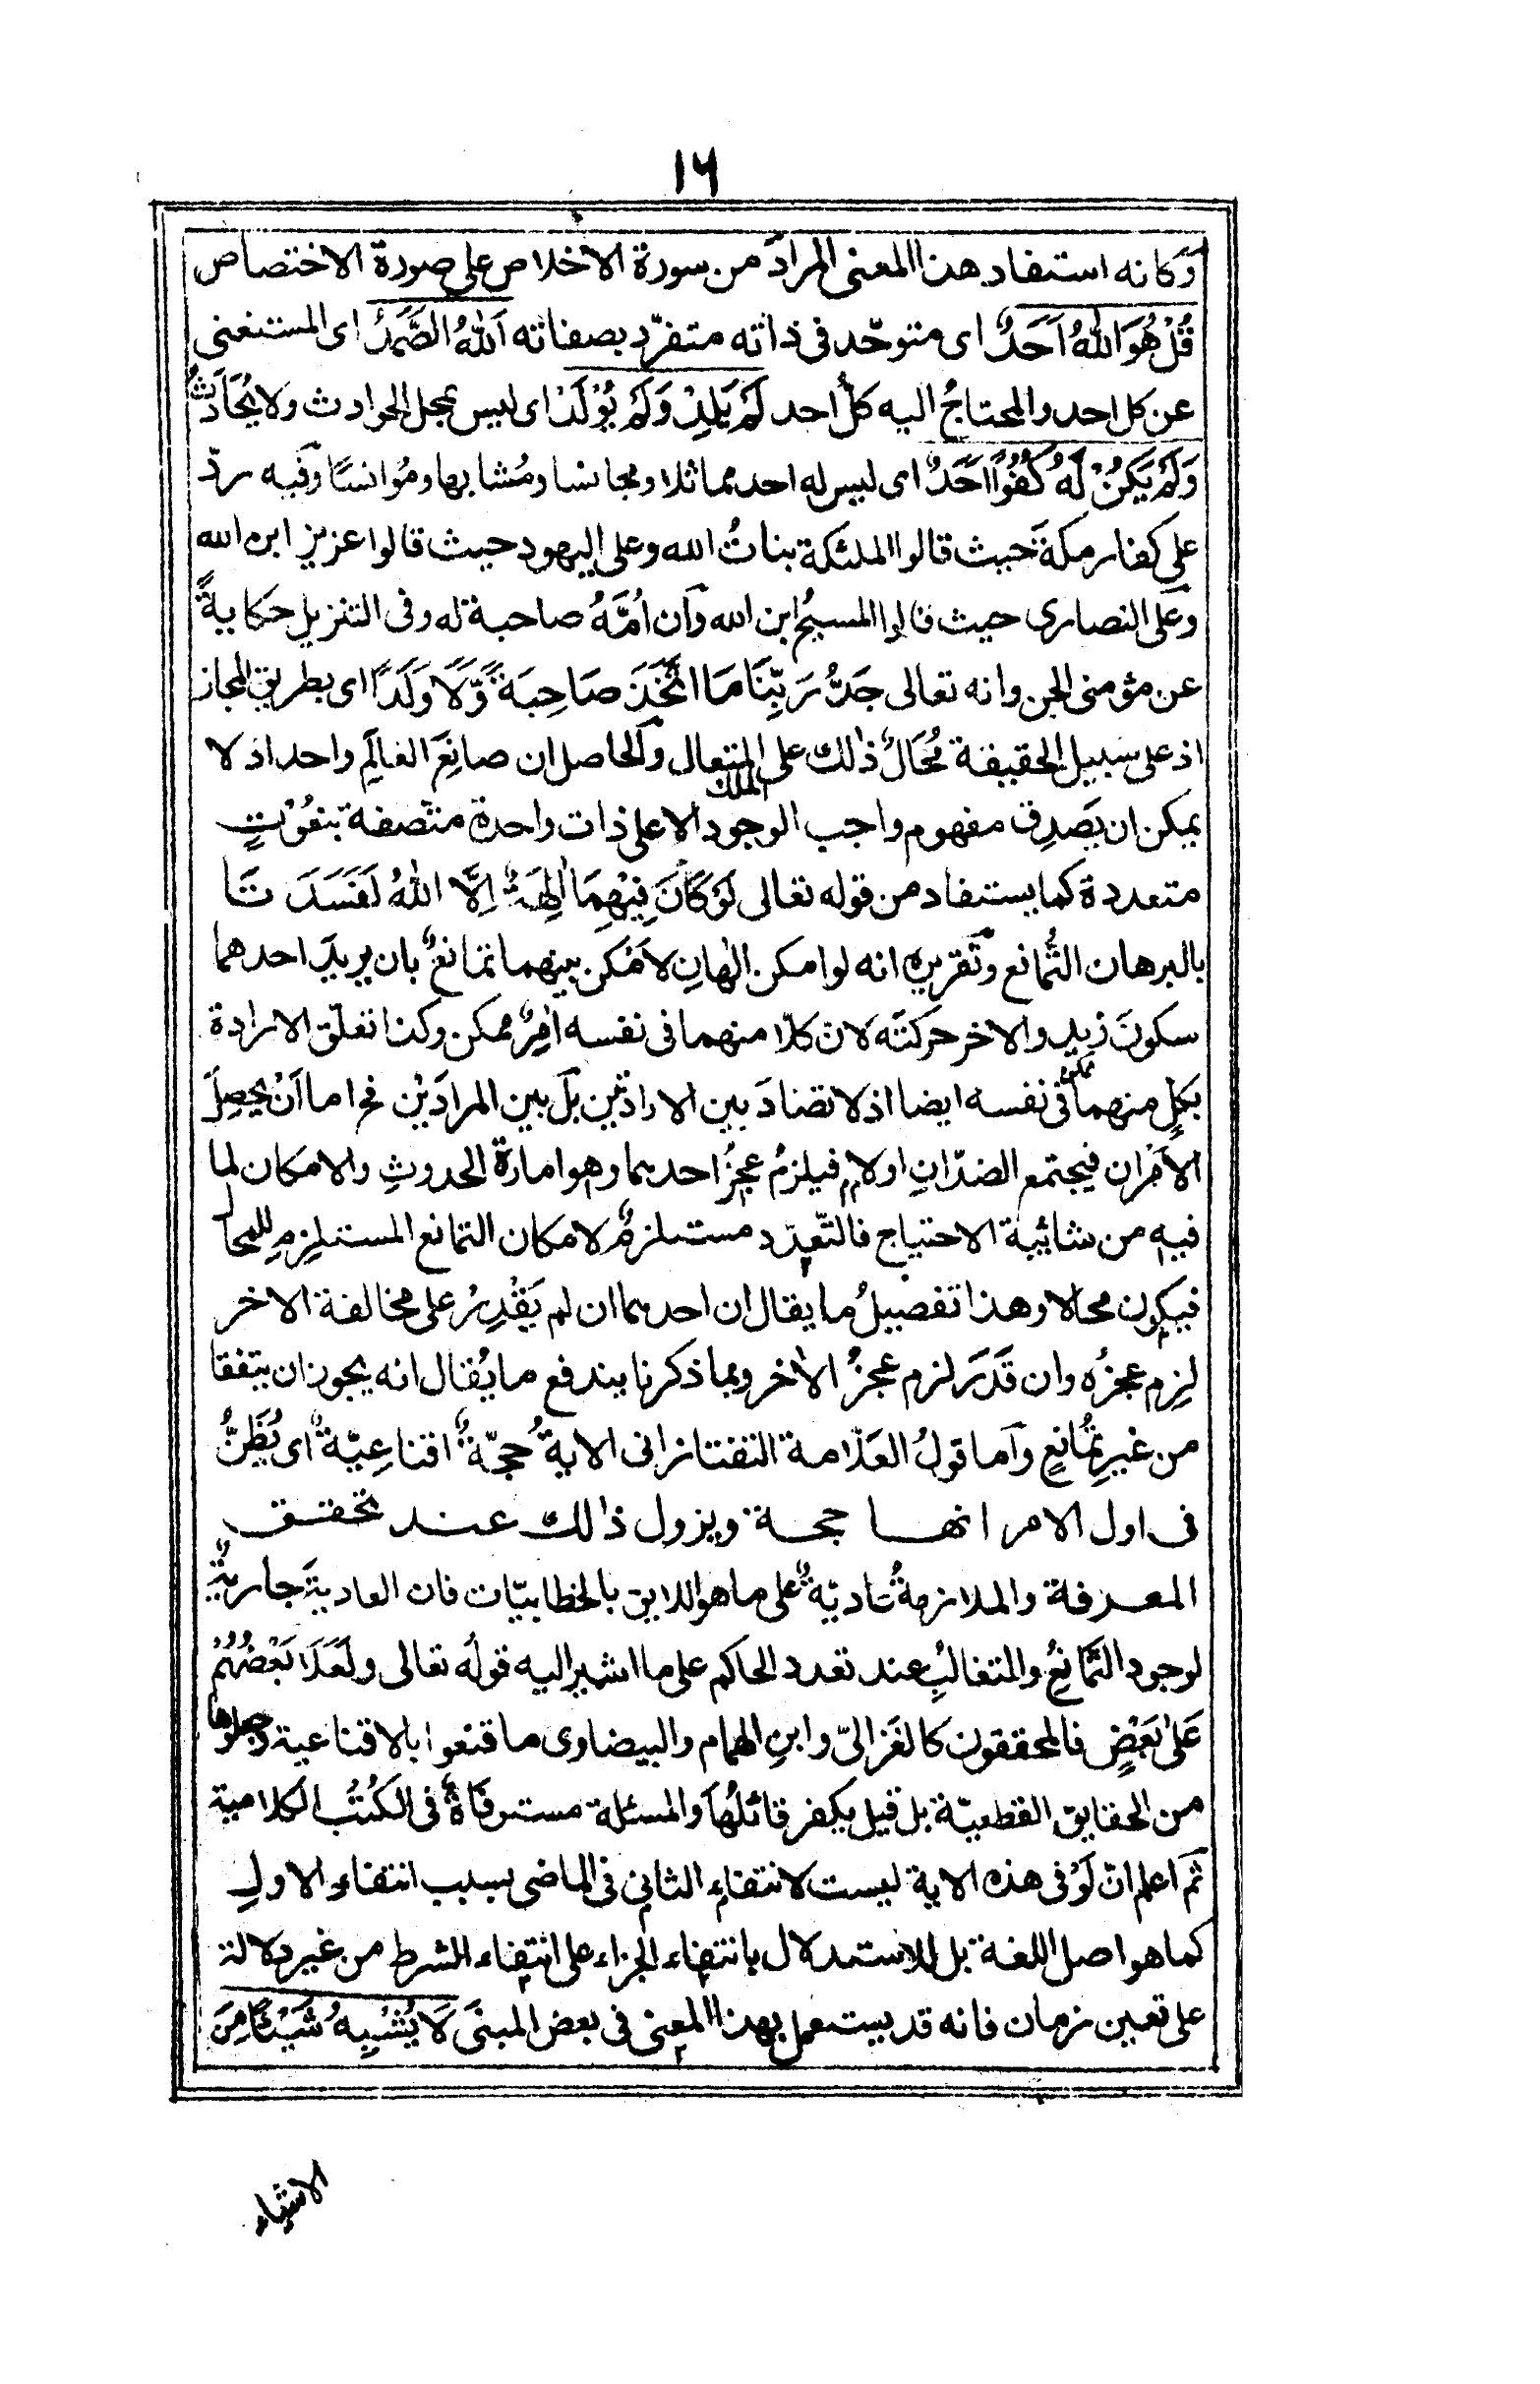 ١٦
وكانه استفاد هذا المعنى المراد من سورة الاخلاص على صورة الاختصاص
قُلْ هُوَ اللّٰهُ اَحَدٌ اى متوحّد فى ذاته متفرّد بصفاته اَللّٰهُ الصَّمَدُ اى المستغنى
عن كل احد والمحتاجُ اليه كلُّ احد لَمْ يَلِدْ وَلَمْ يُوْلَدْ اى ليس بمحل الحوادث ولا بحادثٍ
وَلَمْ يَكُنْ لَّهُ كُفُوًا اَحَدٌ اى ليس له احد مماثلا ومجانسا ومُشابها ومُوانسًا وفيه ردّ
على كفار مكةَ حيث قالوا الملئكة بناتُ الله وعلى اليهود حيث قالوا عزيز ابن الله
وعلى النصارى حيث قالوا المسيحُ ابن الله وان اُمَّهُ صاحبة له وفى التنزيل حكايةً
عن مؤمنى الجن وانه تعالى جَدُّ رَبِّنَا مَا اتَّخَذَ صَاحِبَةً وَّلَا وَلَدًا اى بطريق المجاز
اذ على سبيل الحقيقة مُحَالٌ ذٰلك على الملك المتعال والحاصل ان صانِعَ العالَمِ واحد اذ لا
يمكن ان يَصدِق مفهوم واجب الوجود الا على ذات واحدة متّصفة بنعُوْتٍ
متعددة كما يستفاد من قوله تعالى لَوْ كَانَ فِيْهِمَا اٰلِهَةٌ اِلَّا اللّٰهُ لَفَسَدَتَا
بالبرهان التُمانع وتقريره انه لو امكن الٰهانِ لاَمْكن بينهما تمانعٌ بان يريد احدهما
سكونَ زيد والاخر حركتَه لان كلّا منهما فى نفسه امرٌ ممكن وكذا تعلّق الارادة
بكلٍ منهما ممكن فى نفسه ايضا اذ لا تضادَ بين الارادتين بل بين المرادَيْن فح اما اَنْ يحصِلَ
الاَمْران فيجتمع الضدّانِ اولا فيلزمُ عجزُ احدهما وهو امارة الحدوثِ والامكان لما
فيه من شائبة الاحتياج فالتّعدّد مستلزمٌ لامكان التمانع المستلزِمِ للمحال
فيكون محالا وهذا تفصيلُ ما يقال ان احدهما ان لم يَقْدِرْ على مخالفة الاخر
لزِم عجزُه وان قَدَرَ لزم عجزُ الاٰخر وبما ذكرنا يندفع ما يُقال انه يجوز ان يتفقا
من غيرِ تمُانعٍ واما قولُ العَلّامة التفتازانى الايةُ حجّةٌ اقناعِيّةٌ اى يُظَنُّ
فى اول الامر انها حجة ويزول ذٰلك عند تحقق
المعرفة والملازمةُ عاديّةٌ على ما هو اللايق بالخطابيّات فان العاديةَ جاريةٌ
لوجود التَّمانعُ والمتغالبِ عند تعدد الحاكم على ما اشير اليه قولُه تعالى وَلَعَلَا بَعْضُهُمْ
عَلٰى بَعْضٍ فالمحققون كالغَزالىّ وابنِ الهمام والبيضاوى ما قنعوا بالاقناعية وجعلوها
من الحقايق القطعيّة بل قيل يكفر قائلُها والمسئلة مستوفَاةٌ فى الكُتُب الكلامية
ثم اعلم انّ لَوْ فى هذه الاية ليست لانتفاء الثانى فى الماضى بسبب انتفاء الاول
كما هو اصل اللغة بل للاستدلال بانتفاء الجزاء على انتفاء الشرط من غير دلالة
على تعيين زمان فانه قد يستعمل بهذا المعنى فى بعض المبنَى لَا يُشْبِهُ شَيْئًا مِنَ
الاشياء